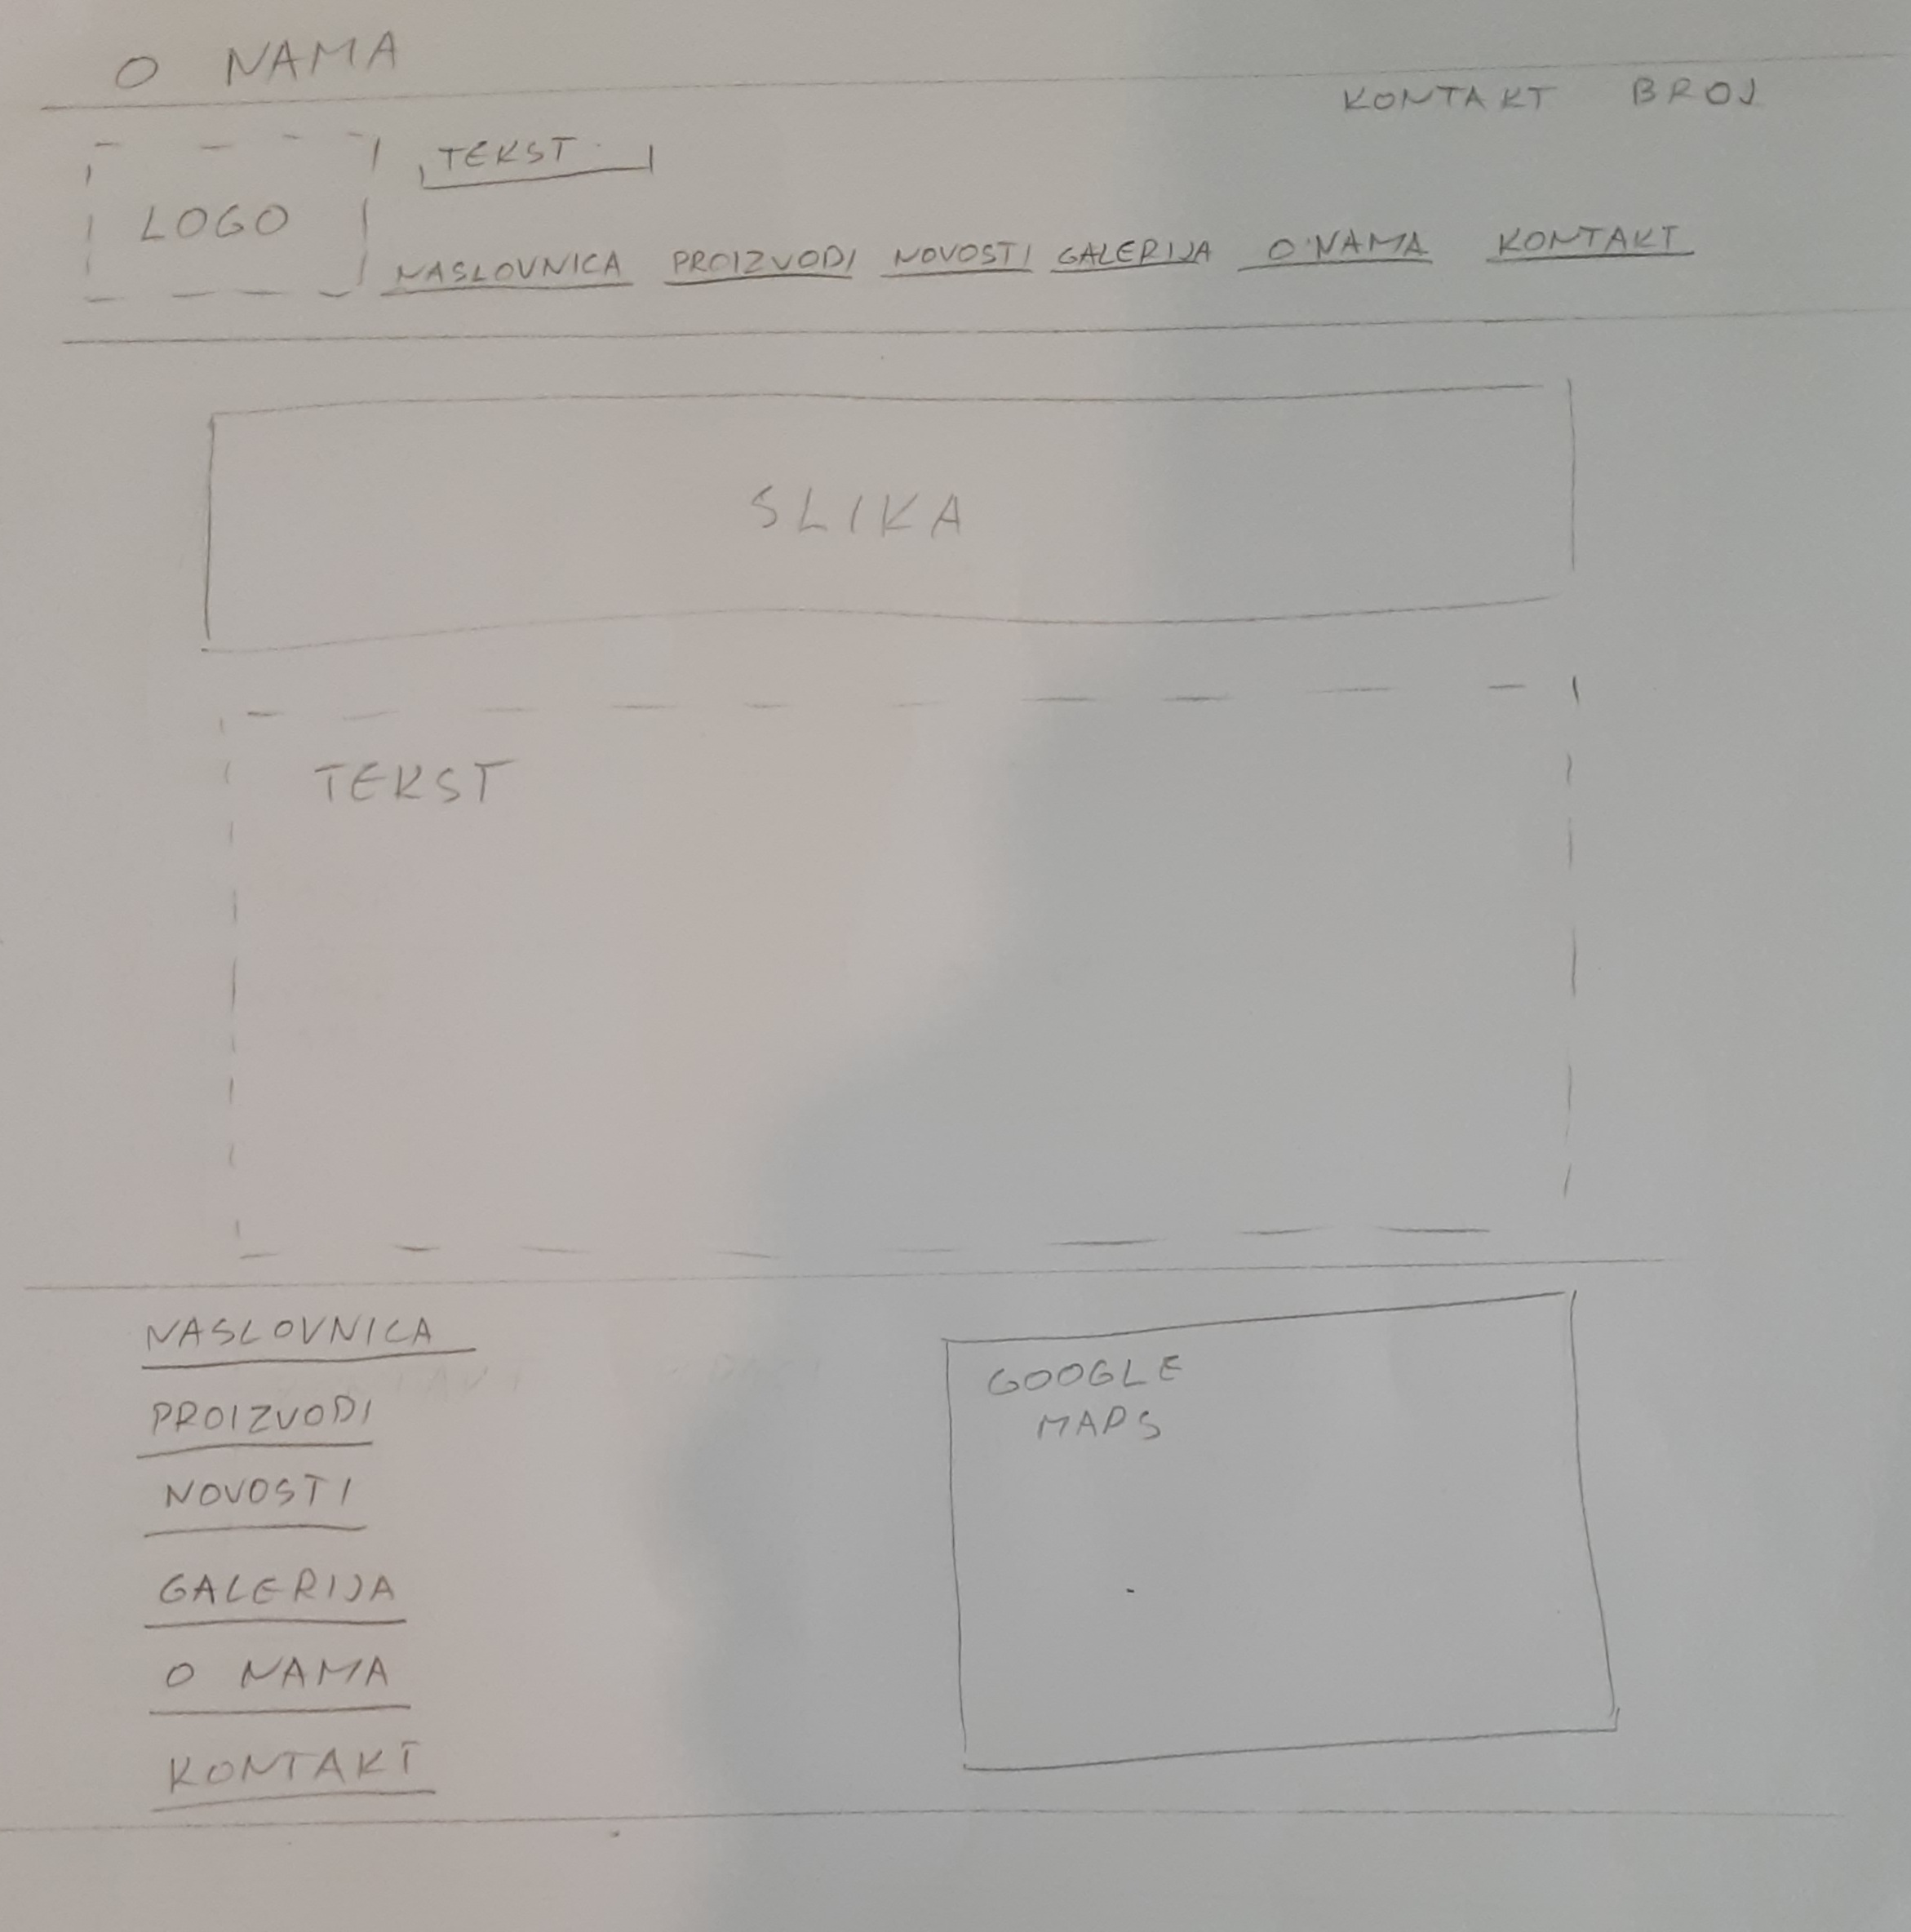 O NAMA
KONTAKT BROJ
TEKST
LOGO
NASLOVNICA PROIZVODI NOVOSTI GALERIJA O NAMA KONTAKT
SLIKA
TEKST
NASLOVNICA
PROIZVODI
NOVOSTI
GALERIJA
O NAMA
KONTAKT
GOOGLE
MAPS